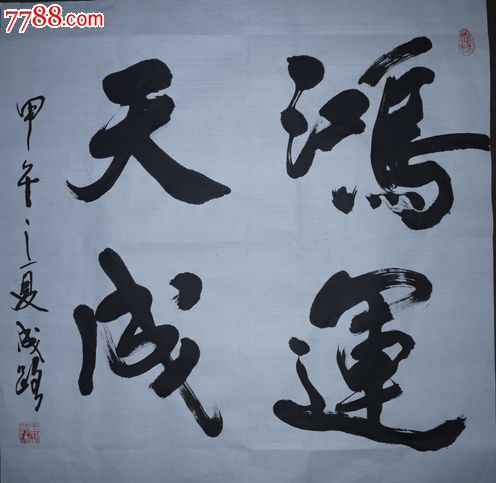 7788.com
鴻運
天成
甲午之夏成鋒